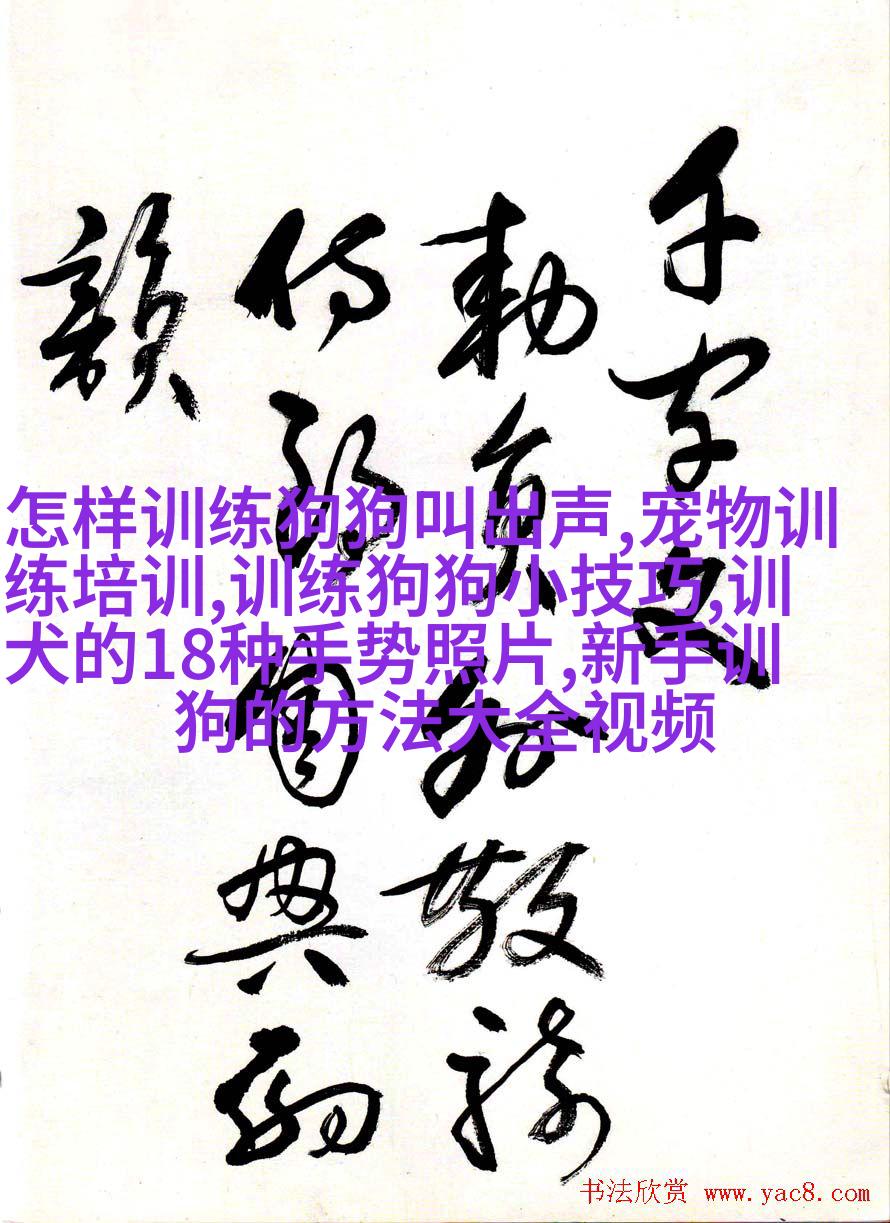 千字文
勅員外散騎
侍郎周興嗣
韻
怎样训练狗狗叫出声,宠物训
练培训,训练狗狗小技巧,训
犬的18种手势照片,新手训
狗的方法大全视频
书法欣赏 www.yac8.com